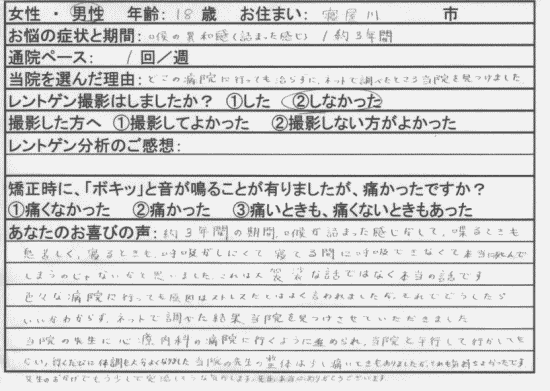 女性・男性 年齢：18歳 お住まい：寝屋川市
お悩の症状と期間：喉の異和感(詰まった感じ) / 約3年間
通院ペース： 1回／週
当院を選んだ理由：どこの病院に行っても治らずに、ネットで調べたところ当院を見つけました
レントゲン撮影はしましたか？ ①した ②しなかった
撮影した方へ ①撮影してよかった ②撮影しない方がよかった
レントゲン分析のご感想：
矯正時に、「ボキッ」と音が鳴ることが有りましたが、痛かったですか？
①痛くなかった ②痛かった ③痛いときも、痛くないときもあった
あなたのお喜びの声：約3年間の期間、喉が詰まった感じがして、喋るときも
息苦しく、寝るときも、呼吸がしにくくて寝てる間に呼吸できなくて本当に死んで
しまうのじゃないかと思いました。これは大袈裟な話ではなく本当の話です
色々な病院に行っても原因はストレスだとはよく言われましたが、それでどうしたら
いいかわからず、ネットで調べた結果、当院を見つけさせていただきました
当院の先生に心療内科の病院に行くように進められ、当院と平行して行かしても
らい、行くたびに体調も大分よくなりました 当院の先生の整体は少し痛いときもありましたが、それも気持ちよかったです
先生のおかげでもう少しで完治しそうな気がします。